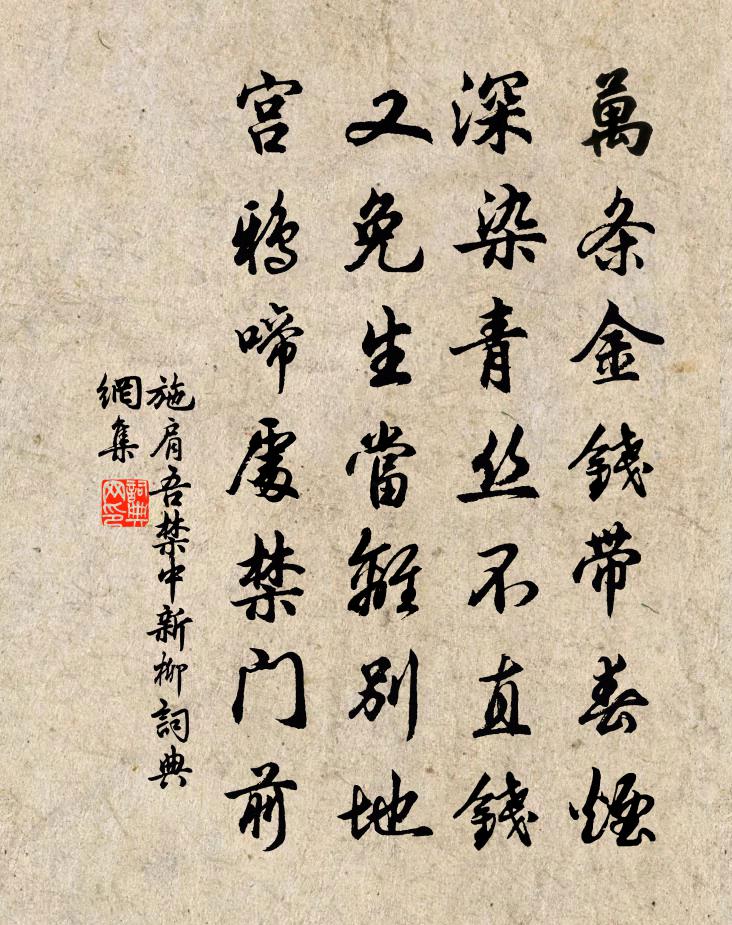 萬条金錢帶春煙
深染青丝不直錢
又免生當離別地
宫鴉啼處禁门前
施肩吾禁中新柳詞典
網集
詞典
网印